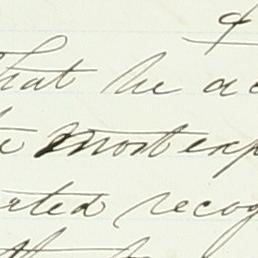 &
that he ac
te most exp
ated recog